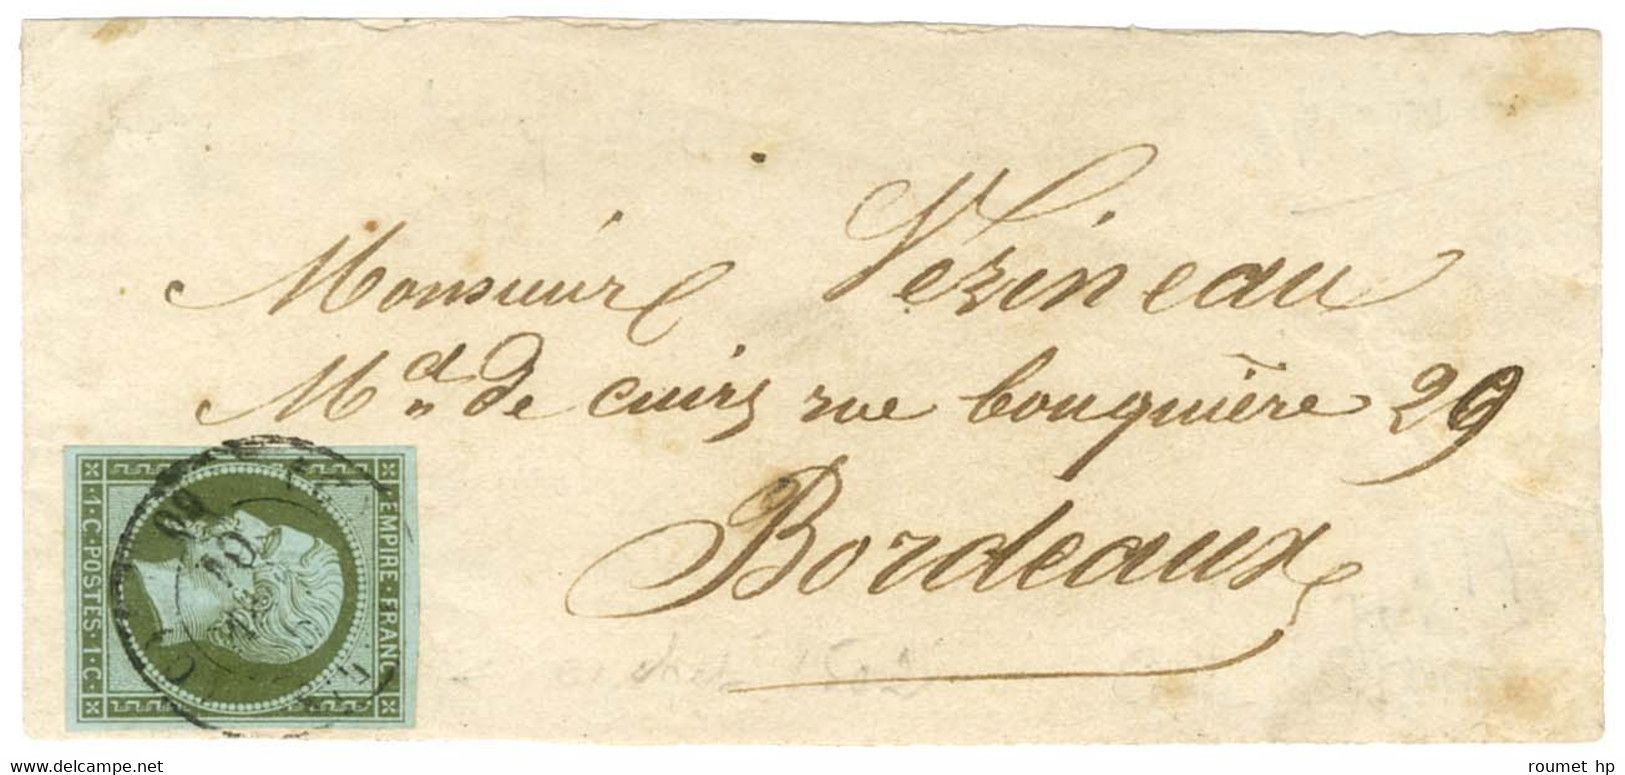 Monsieur Vezineau
Md de cuirs rue bouquière 29
Bordeaux
EMPIRE · FRANC
1 · C · POSTES · 1 · C
60
www.delcampe.net
roumet hp